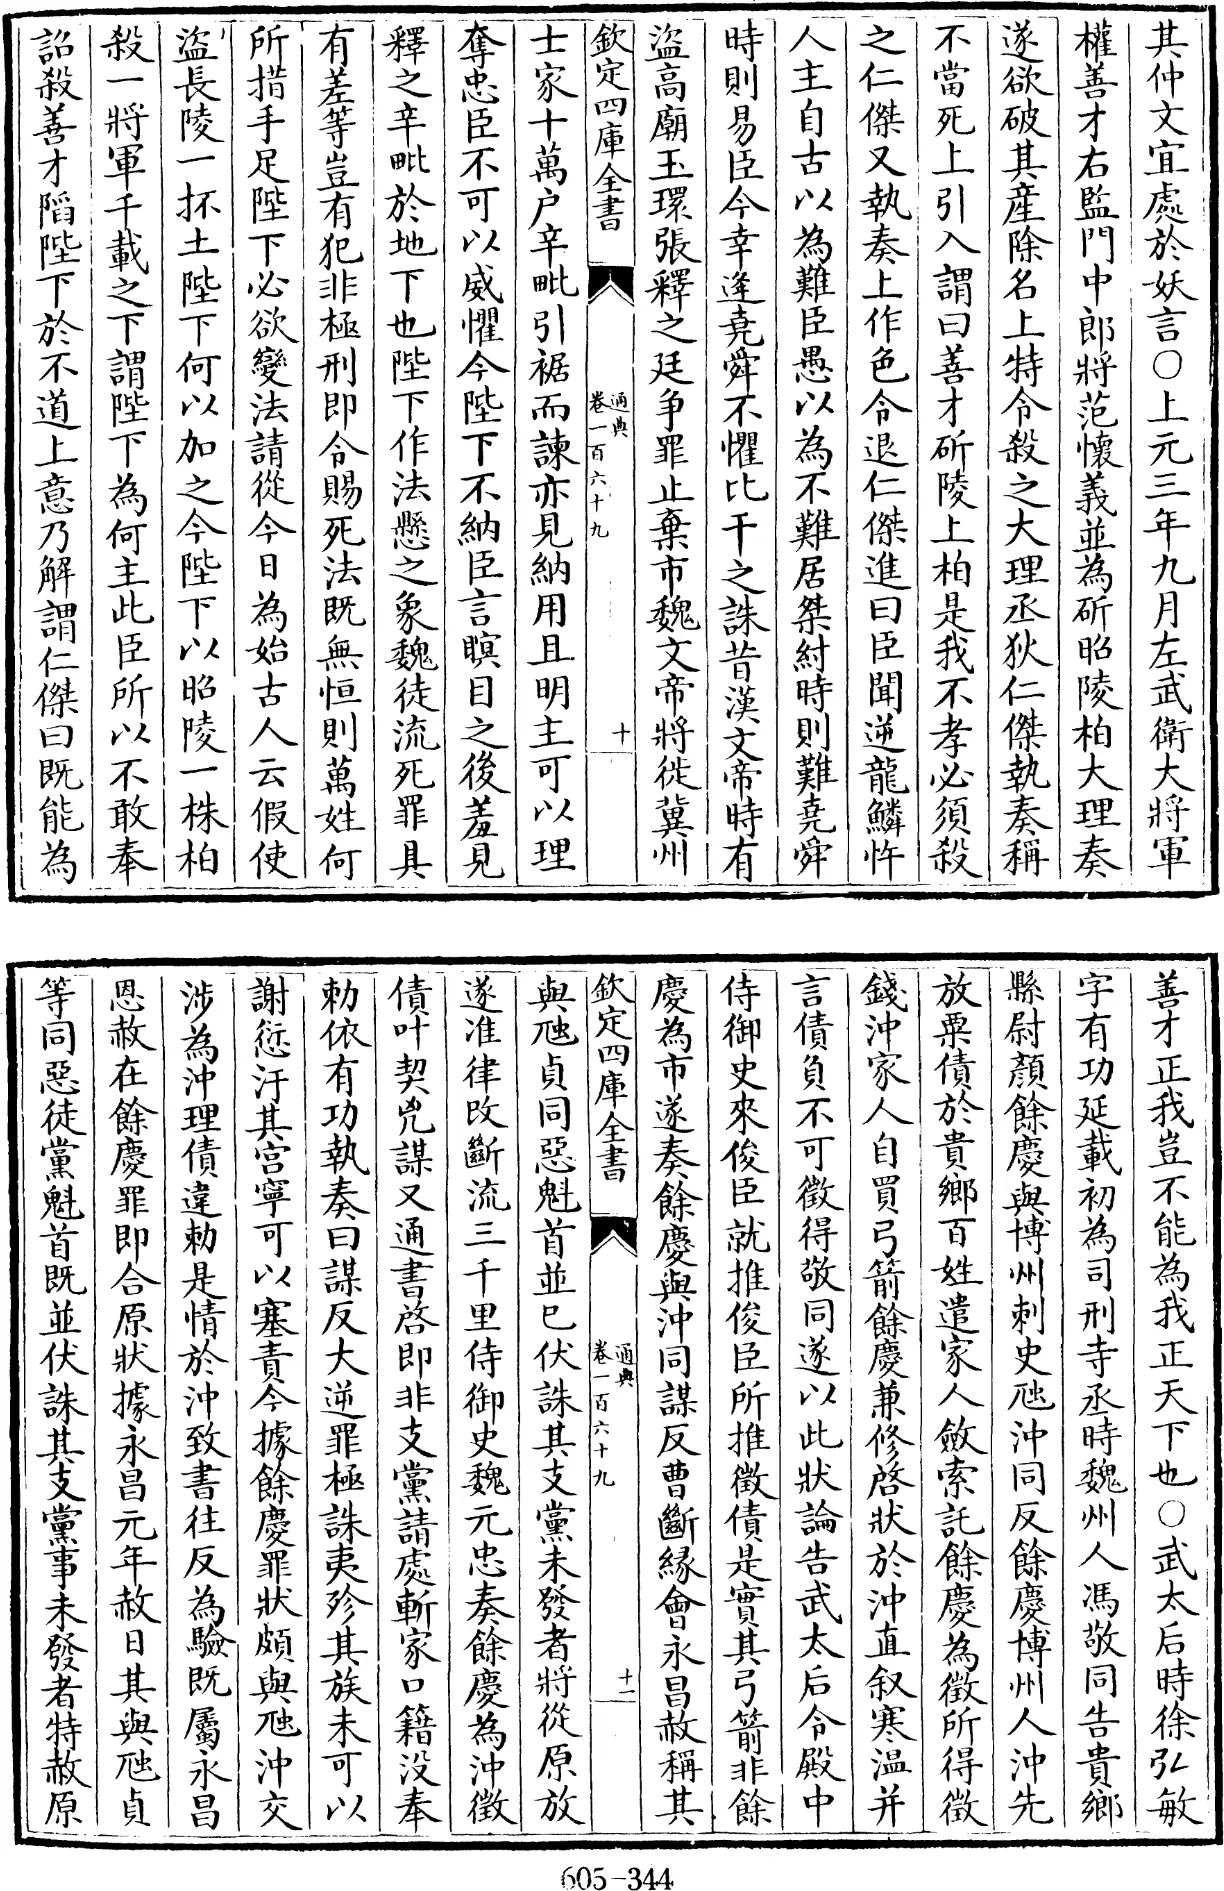 其仲文宜處於妖言○上元三年九月左武衛大將軍
權善才右監門中郎將范懷義並為斫昭陵柏大理奏
遂欲破其產除名上特令殺之大理丞狄仁傑執奏稱
不當死上引入謂曰善才斫陵上柏是我不孝必須殺
之仁傑又執奏上作色令退仁傑進曰臣聞逆龍鱗忤
人主自古以為難臣愚以為不難居桀紂時則難堯舜
時則易臣今幸逢堯舜不懼比干之誅昔漢文帝時有
盜高廟玉環張釋之廷爭罪止棄市魏文帝將徙冀州
欽定四庫全書
通典
卷一百六十九
十
士家十萬户辛毗引裾而諫亦見納用且明主可以理
奪忠臣不可以威懼今陛下不納臣言瞑目之後羞見
釋之辛毗於地下也陛下作法懸之象魏徒流死罪具
有差等豈有犯非極刑即令賜死法既無恒則萬姓何
所措手足陛下必欲變法請從今日為始古人云假使
盜長陵一抔土陛下何以加之今陛下以昭陵一株柏
殺一將軍千載之下謂陛下為何主此臣所以不敢奉
詔殺善才䧟陛下於不道上意乃解謂仁傑曰既能為
善才正我豈不能為我正天下也○武太后時徐弘敏
字有功延載初為司刑寺丞時魏州人馮敬同告貴鄉
縣尉顏餘慶與博州刺史虺沖同反餘慶博州人沖先
放粟債於貴鄉百姓遣家人斂索託餘慶為徵所得徵
錢沖家人自買弓箭餘慶兼修啓狀於沖直叙寒温并
言債負不可徵得敬同遂以此狀論告武太后令殿中
侍御史來俊臣就推俊臣所推徵債是實其弓箭非餘
慶為市遂奏餘慶與沖同謀反曹斷緣會永昌赦稱其
欽定四庫全書
通典
卷一百六十九
十一
與虺貞同惡魁首並已伏誅其支黨未發者將從原放
遂准律改斷流三千里侍御史魏元忠奏餘慶為沖徵
債叶契兇謀又通書啓即非支黨請處斬家口籍没奉
勅依有功執奏曰謀反大逆罪極誅夷殄其族未可以
謝愆汙其宫寧可以塞責今據餘慶罪狀頗與虺沖交
涉為沖理債違勅是情於沖致書往反為驗既屬永昌
恩赦在餘慶罪即合原狀據永昌元年赦日其與虺貞
等同惡徒黨魁首既並伏誅其支黨事未發者特赦原
605-344